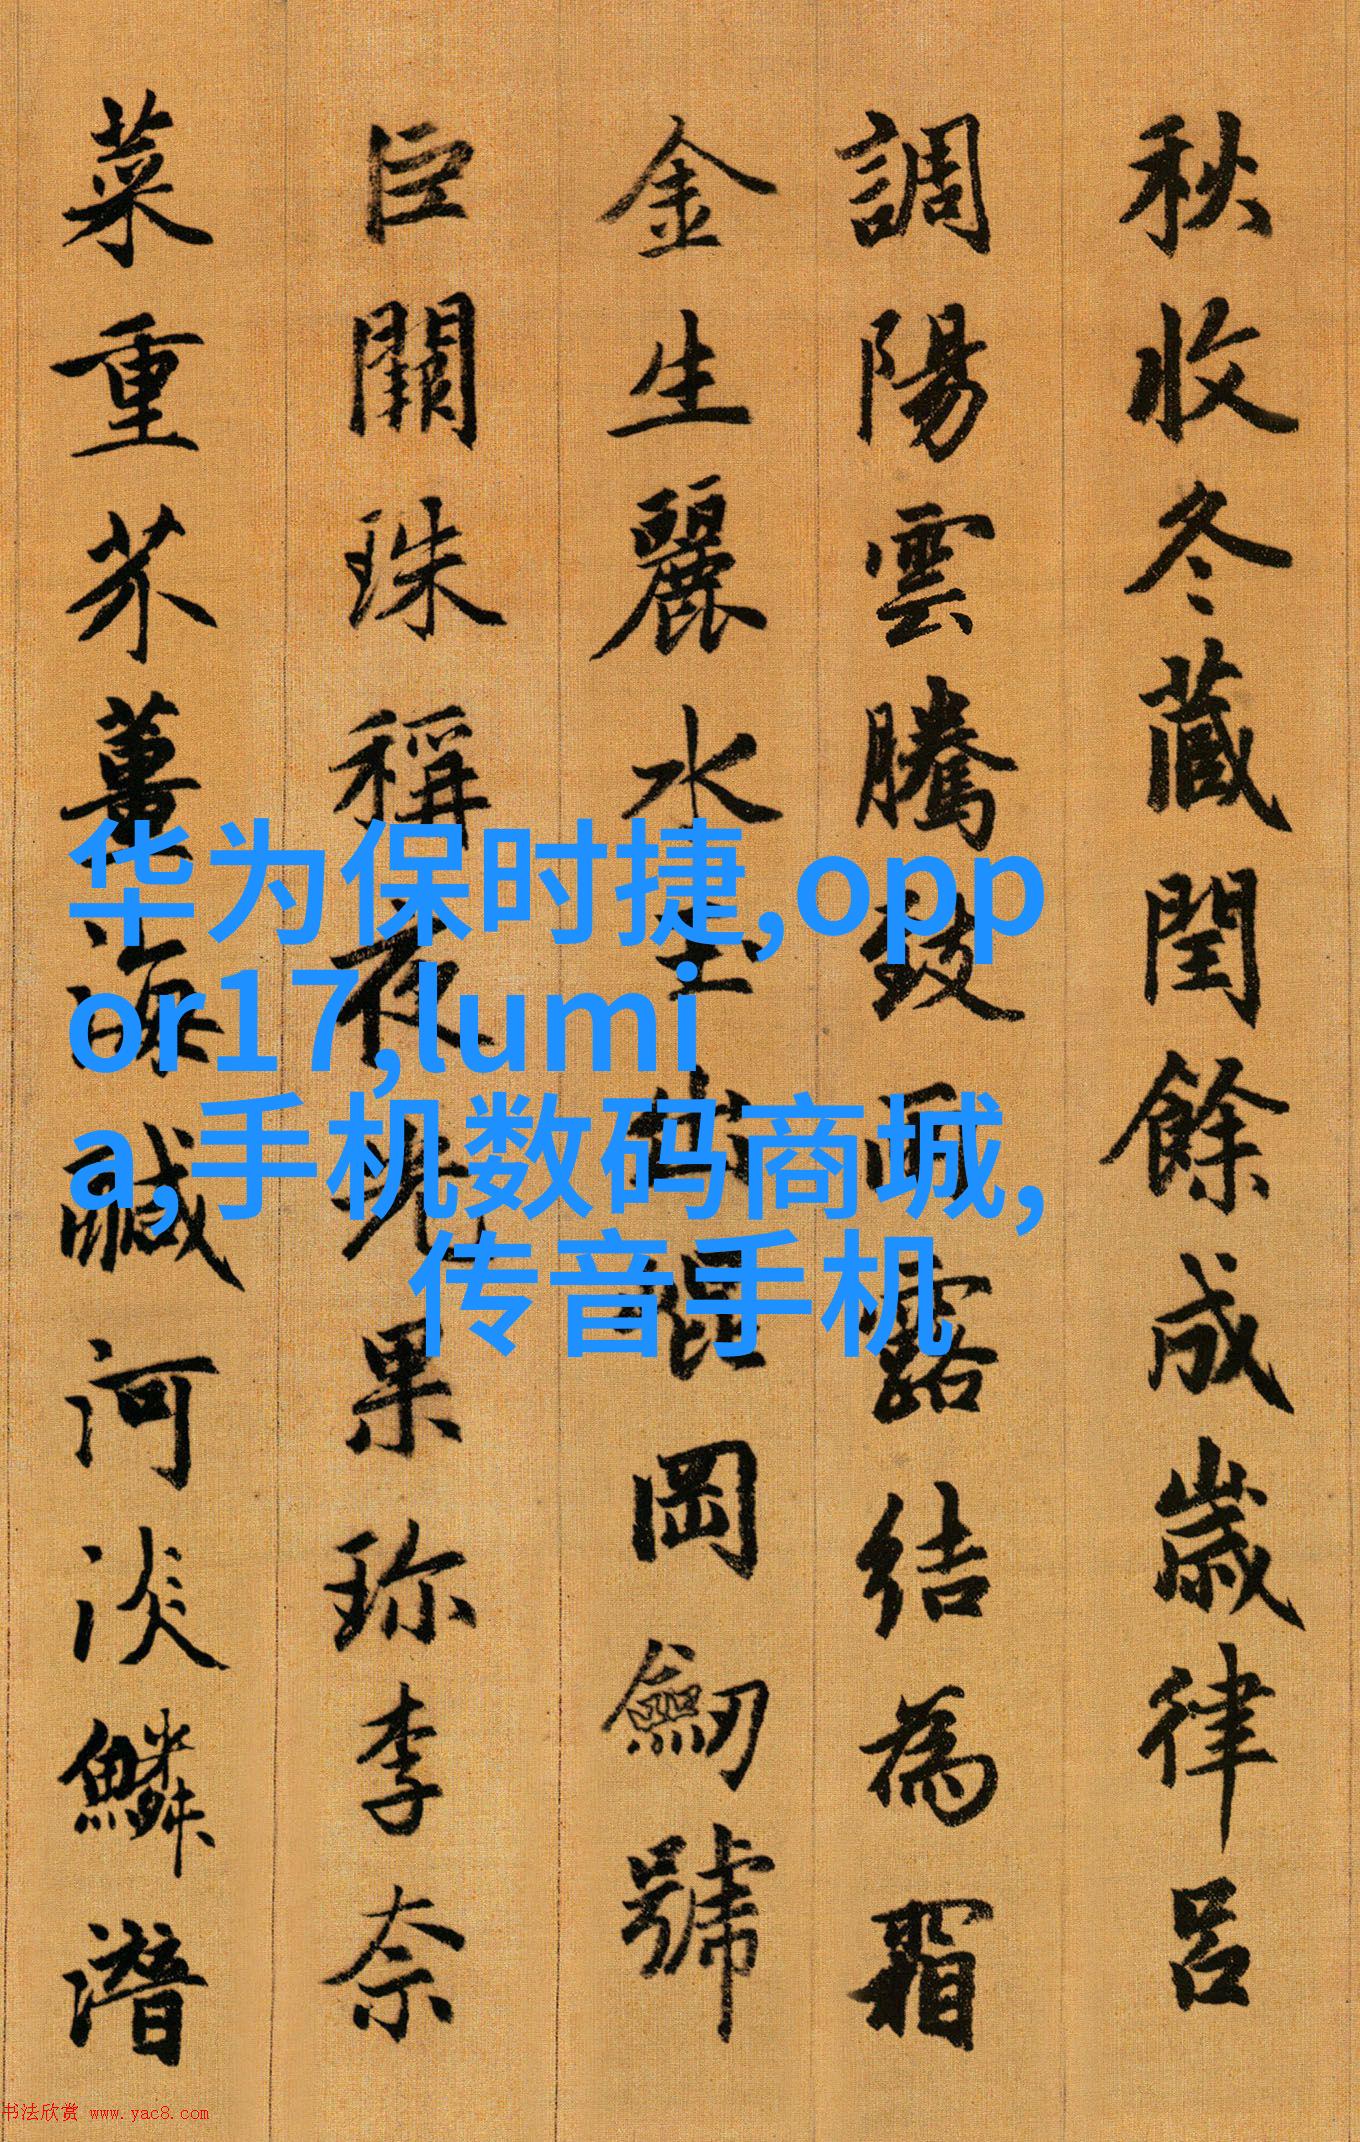 秋收冬藏閏餘成歲律呂
調陽雲騰致雨露結為霜
金生麗水玉出崑岡劒號
巨闕珠稱夜光果珎李柰
菜重芥薑海醎河淡鱗潛
华为保时捷,opp
or17,lumi
a,手机数码商城,
传音手机
书法欣赏 www.yac8.com